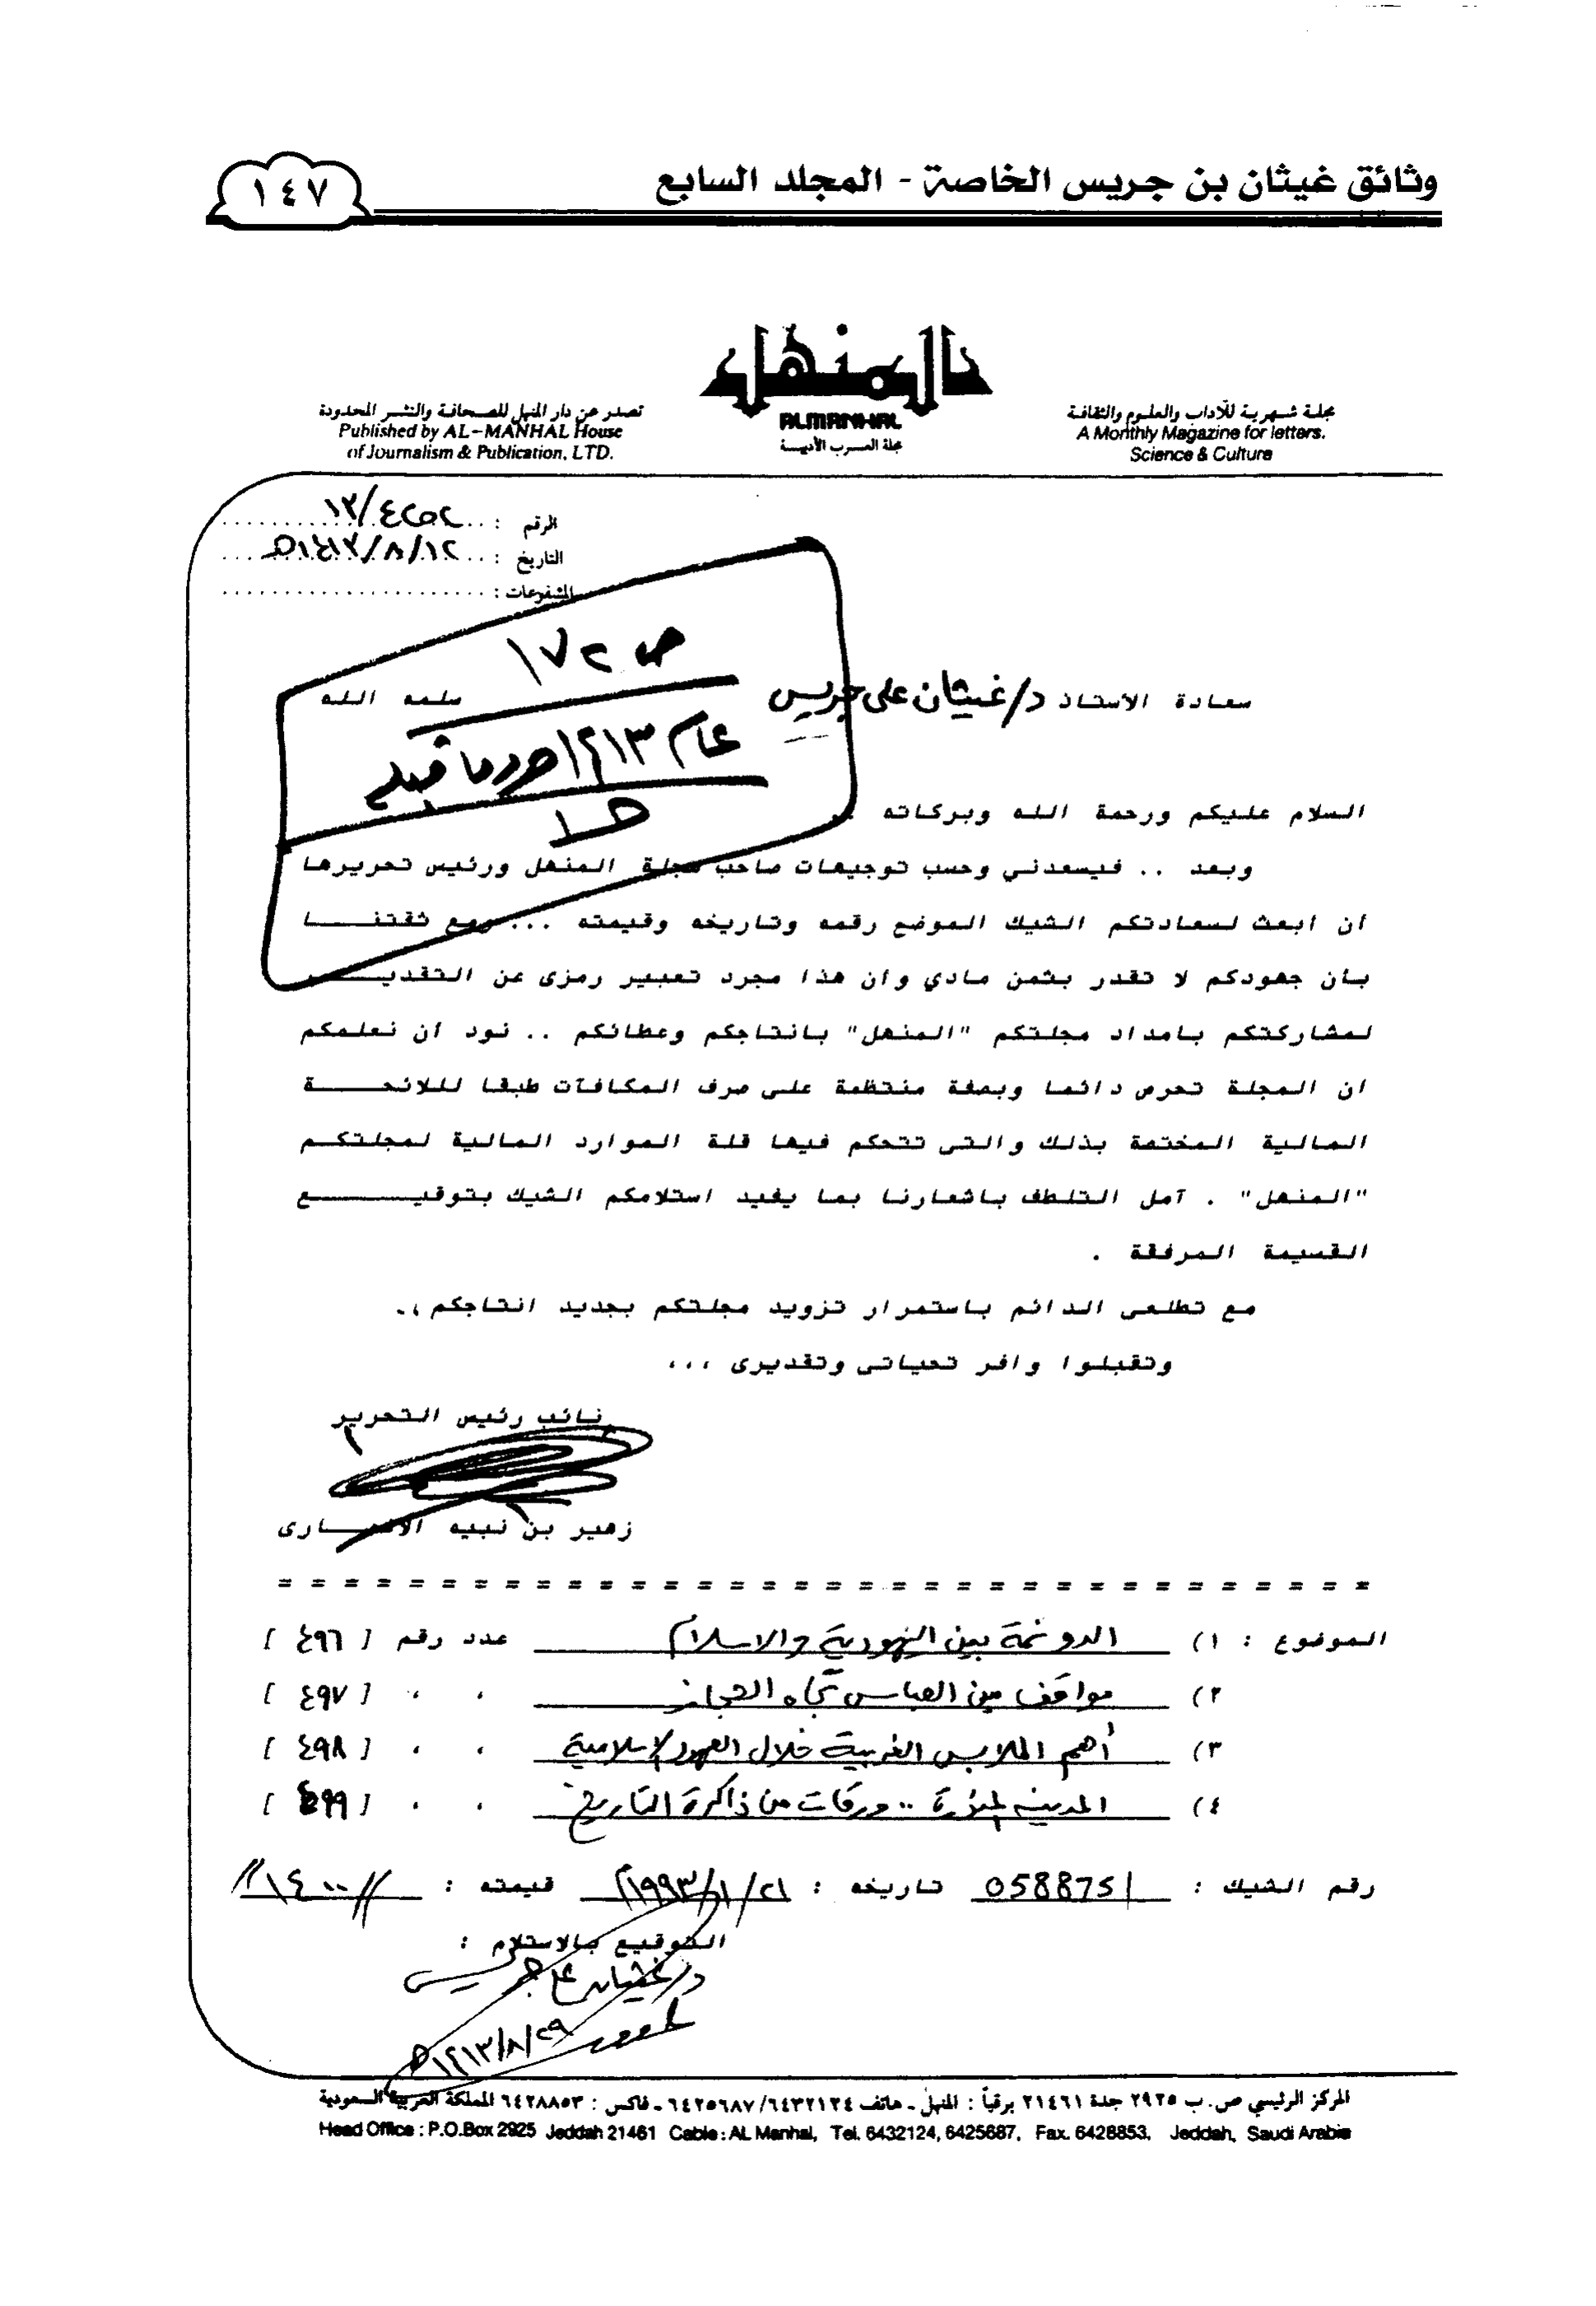 وثائق غيثان بن جريس الخاصة - المجلد السابع
١٤٧
المنهل
ALMANHAL
مجلة العرب الأدبية
مجلة شهرية للآداب والعلوم والثقافة
A Monthly Magazine for letters.
Science & Culture
تصدر عن دار المنهل للصحافة والنشر المحدودة
Published by AL-MANHAL House
of Journalism & Publication, LTD.
الرقم : ١٣/٤٢٥٢
التاريخ : ١٤١٣/٨/١٢هـ
المشفوعات :
ص ١٧٢
عام ١٤١٣هـ وما قبله
سعادة الاستاذ د/غيثان علي جريس سلمه الله
السلام عليكم ورحمة الله وبركاته ..
وبعد .. فيسعدني وحسب توجيهات صاحب مجلة المنهل ورئيس تحريرها
ان ابعث لسعادتكم الشيك الموضح رقمه وتاريخه وقيمته ... ومع ثقتنـــا
بأن جهودكم لا تقدر بثمن مادي وان هذا مجرد تعبير رمزى عن التقديـــر
لمشاركتكم بامداد مجلتكم "المنهل" بانتاجكم وعطائكم .. نود ان نعلمكم
ان المجلة تحرص دائما وبصفة منتظمة على صرف المكافآت طبقا للائحـــة
المالية المختصة بذلك والتى تتحكم فيها قلة الموارد المالية لمجلتكـم
"المنهل" . آمل التلطف باشعارنا بما يفيد استلامكم الشيك بتوقيــــع
القسيمة المرفقة .
مع تطلعى الدائم باستمرار تزويد مجلتكم بجديد انتاجكم ،.
وتقبلوا وافر تحياتى وتقديرى ،،،
نائب رئيس التحرير
زهير بن نبيه الانصــارى
= = = = = = = = = = = = = = = = = = = = = = = = = = = = = = = = = =
الموضوع : ١) الدونمة بين اليهودية والاسلام عدد رقم [ ٤٩٦ ]
٢) مواقف من العباس تجاه الحجاز ، ، [ ٤٩٧ ]
٣) أهم الملابس العربية خلال العهود الإسلامية ، ، [ ٤٩٨ ]
٤) المدينة المنورة .. ورقات من ذاكرة التاريخ ، ، [ ٤٩٩ ]
رقم الشيك : 0588751 تاريخه : ٢١/١/١٩٩٣م قيمته : //١٤٠٠//
التوقيع بالاستلام :
د/غيثان علي جريس
١٤١٣/٨/٢٩هـ
المركز الرئيسي ص.ب ٢٩٢٥ جدة ٢١٤٦١ برقياً : المنهل - هاتف ٦٤٣٢١٢٤/٦٤٢٥٦٨٧ - فاكس : ٦٤٢٨٨٥٣ المملكة العربية السعودية
Head Office : P.O.Box 2925 Jeddah 21461 Cable : AL Manhal, Tel. 6432124, 6425687, Fax. 6428853, Jeddah, Saudi Arabia